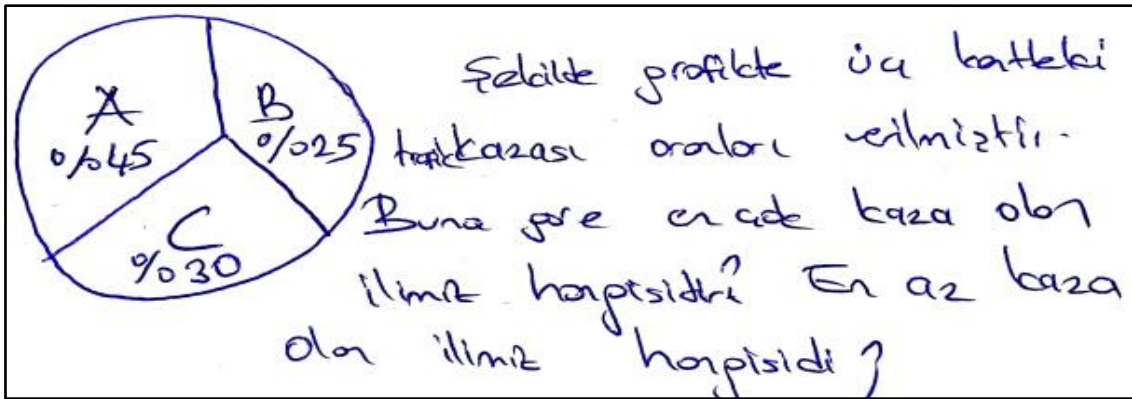 A
%45
B
%25
C
%30
Şekilde grafikte üç kentteki
trafik kazası oranları verilmiştir.
Buna göre en çok kaza olan
ilimiz hangisidir? En az kaza
olan ilimiz hangisidi?